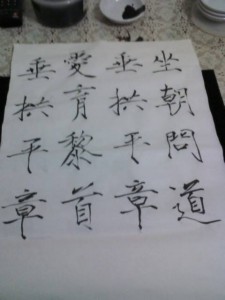 坐朝問道
垂拱平章
愛育黎首
垂拱平章